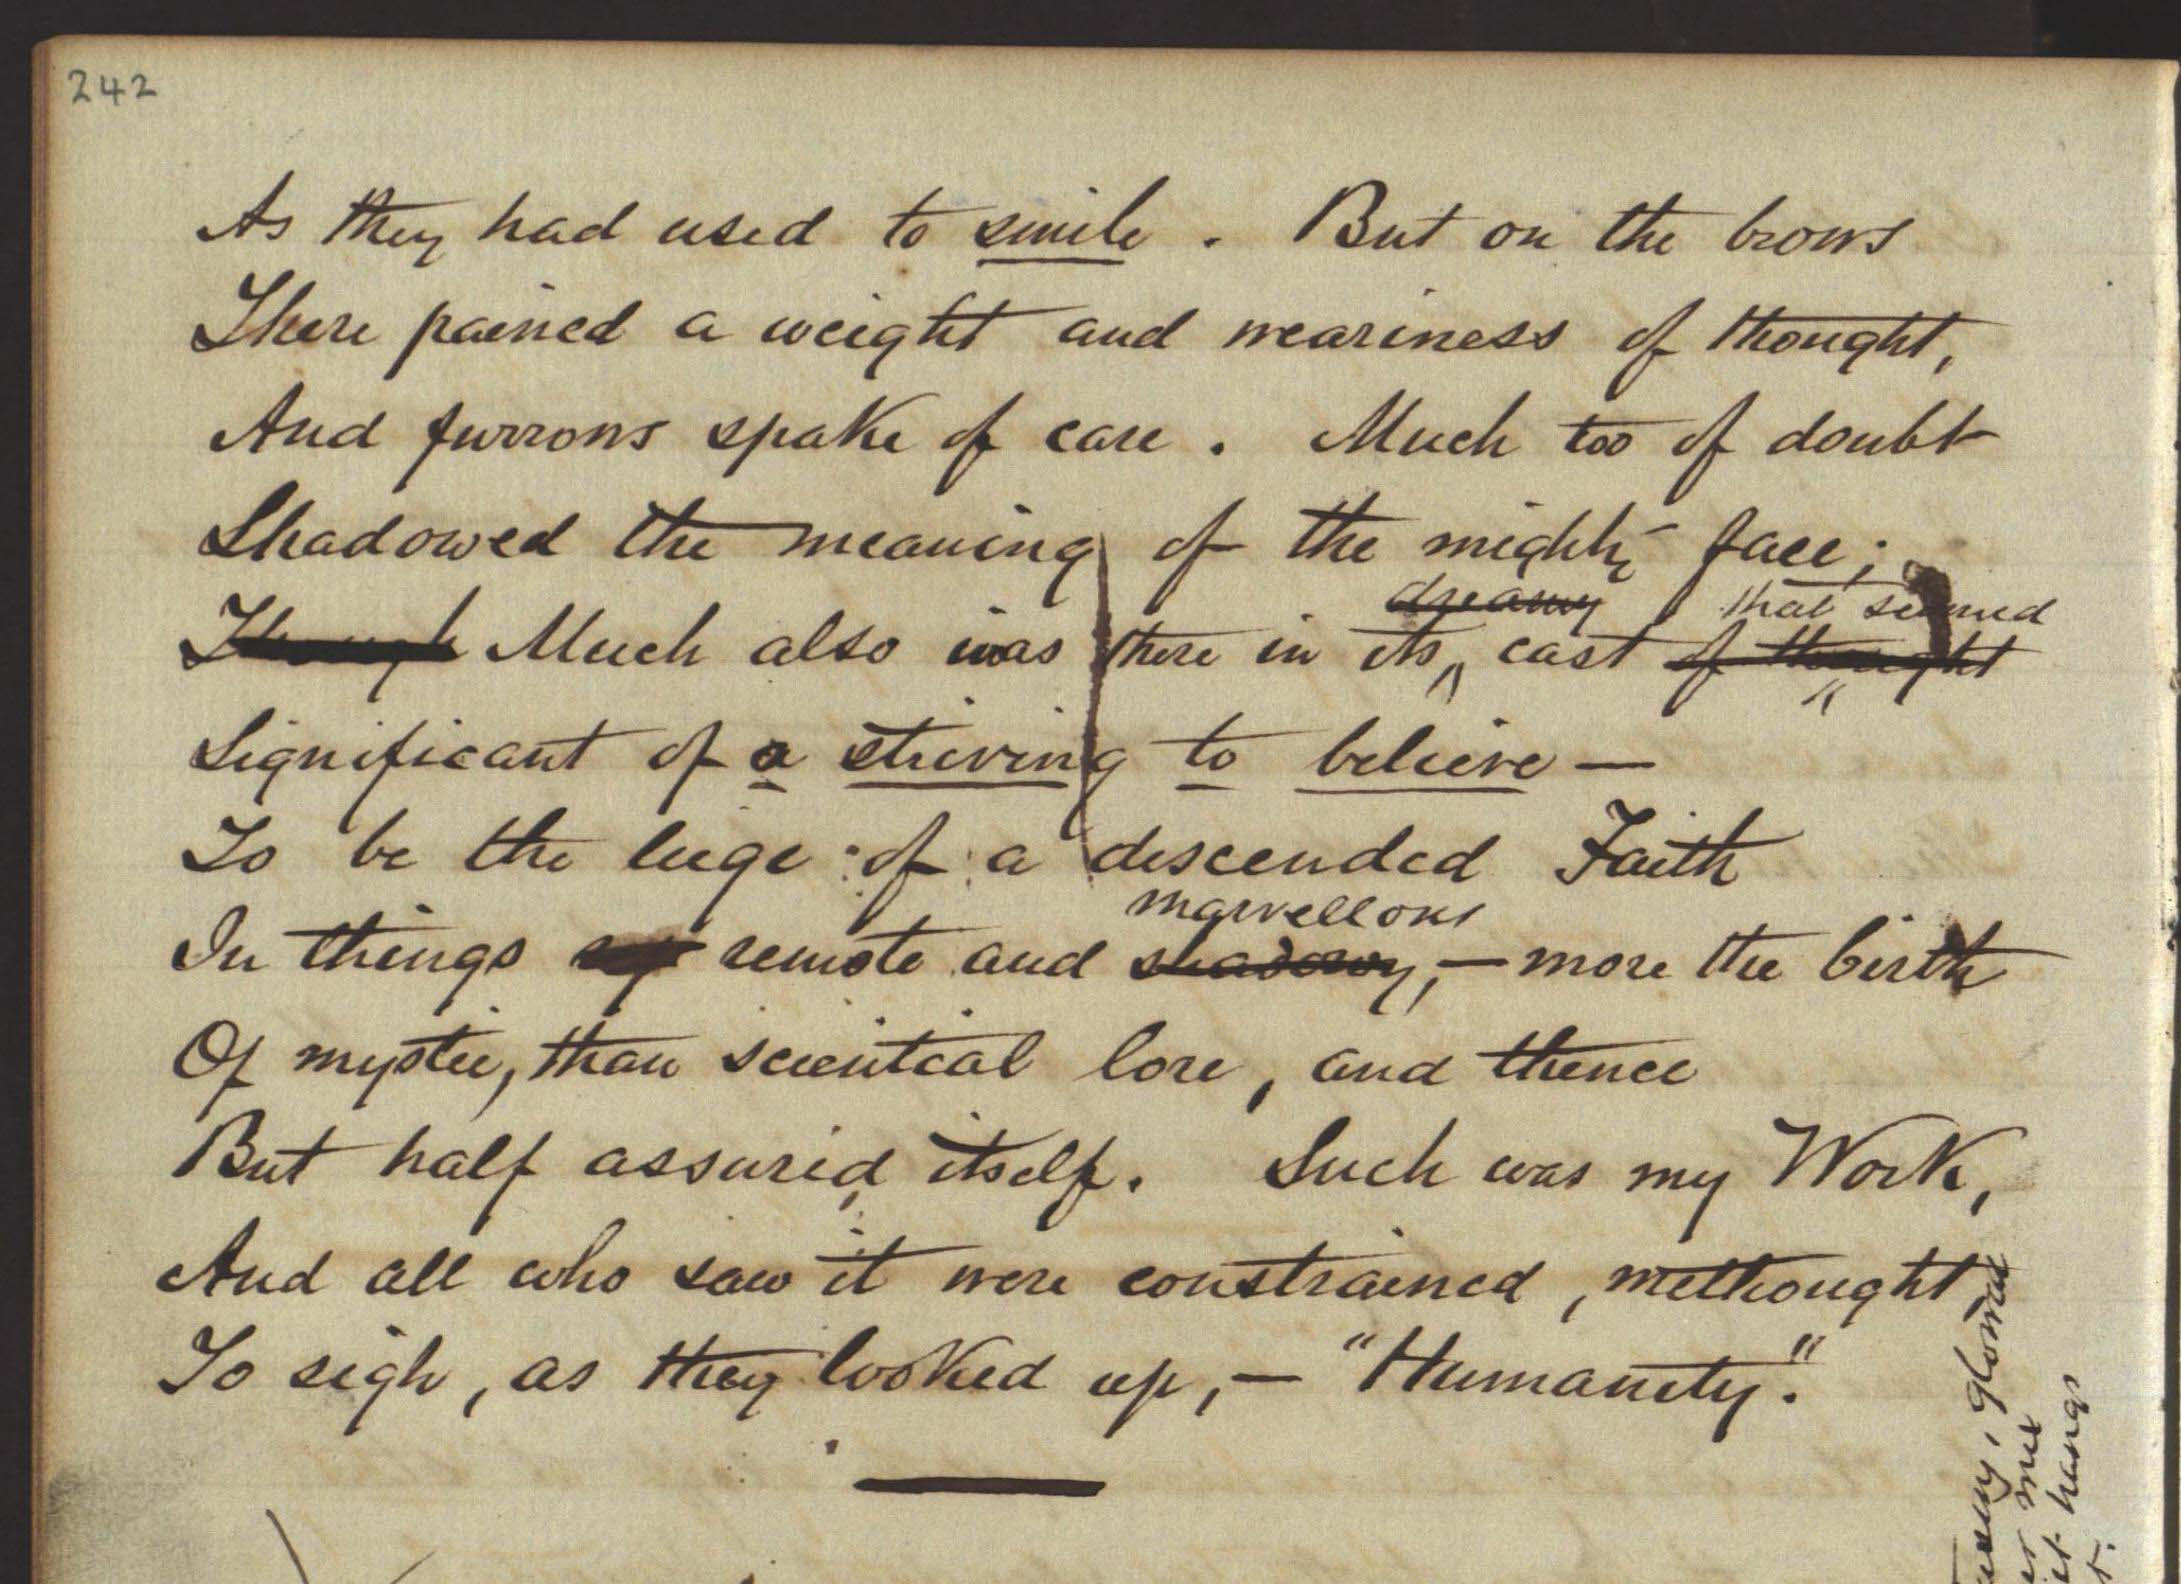 242
As they had used to smile. But on the brows
There pained a weight and weariness of thought,
And furrows spake of care. Much too of doubt
Shadowed the meaning of the mighty face;
dreamy that seemed
Though Much also was there in its cast of thought
Significant of a striving to believe —
To be the liege of a descended Faith
marvellous
In things remote and shadowy, — more the birth
Of mystic, than sciential lore, and thence
But half assured itself. Such was my Work,
And all who saw it were constrained, methought,
To sigh, as they looked up, — "Humanity."
hangs